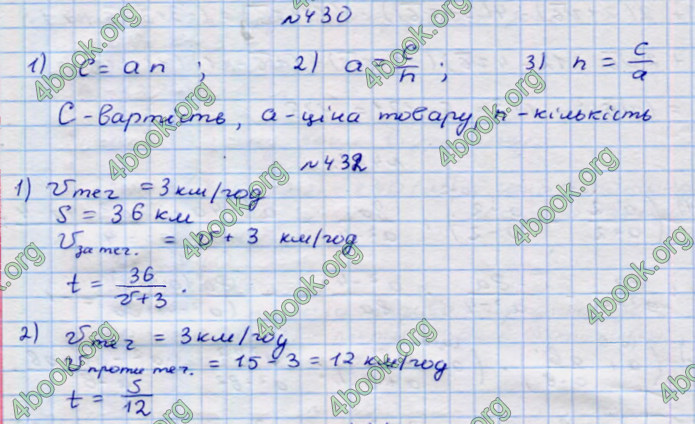 №430
1) C = an ; 2) a = C/n ; 3) n = C/a
C - вартість, a - ціна товару, n - кількість
№432
1) v теч = 3 км/год
S = 36 км
v за теч. = v + 3 км/год
t = 36/(v+3) .
2) v теч = 3 км/год
v проти теч. = 15 - 3 = 12 км/год
t = S/12
4book.org
4book.org
4book.org
4book.org
4book.org
4book.org
4book.org
4book.org
4book.org
4book.org
4book.org
4book.org